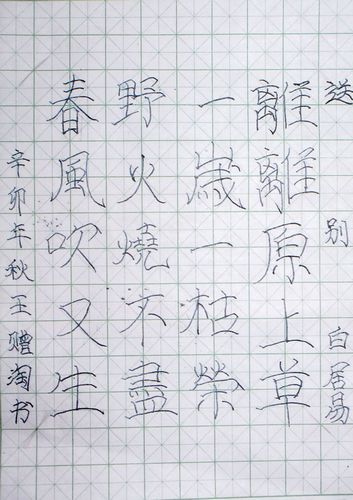 送别 白居易
離離原上草
一歲一枯榮
野火燒不盡
春風吹又生
辛卯年秋王赠淘书